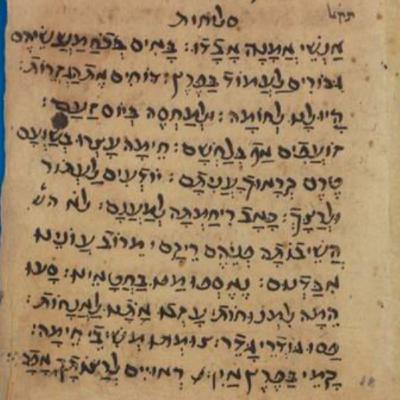 סליחות
אנשי אמנה אבדו: באים בכח מעשיהם
גבורים לעמוד בפרץ: דוחים את הגזרות:
היו לנו לחומה: ולמחסה ביום זעם:
זועכים אף בלחשם: חימה עצרו בשועם
טרם קראוך עניתם: יודעים לעתור
ולרצך: כאב ריחמתה למענם: לא
השיבותה פניהם ריקם: מרוב עונינו
אבדנום: נאספו מנו בחטאינו: סעו
המה למנוחות: עזבו אתנו לאנחות:
פסו גודרי גדר: צומתו משיבי חימה:
קמי בפרץ אין: ראויים לרצותך אפסו